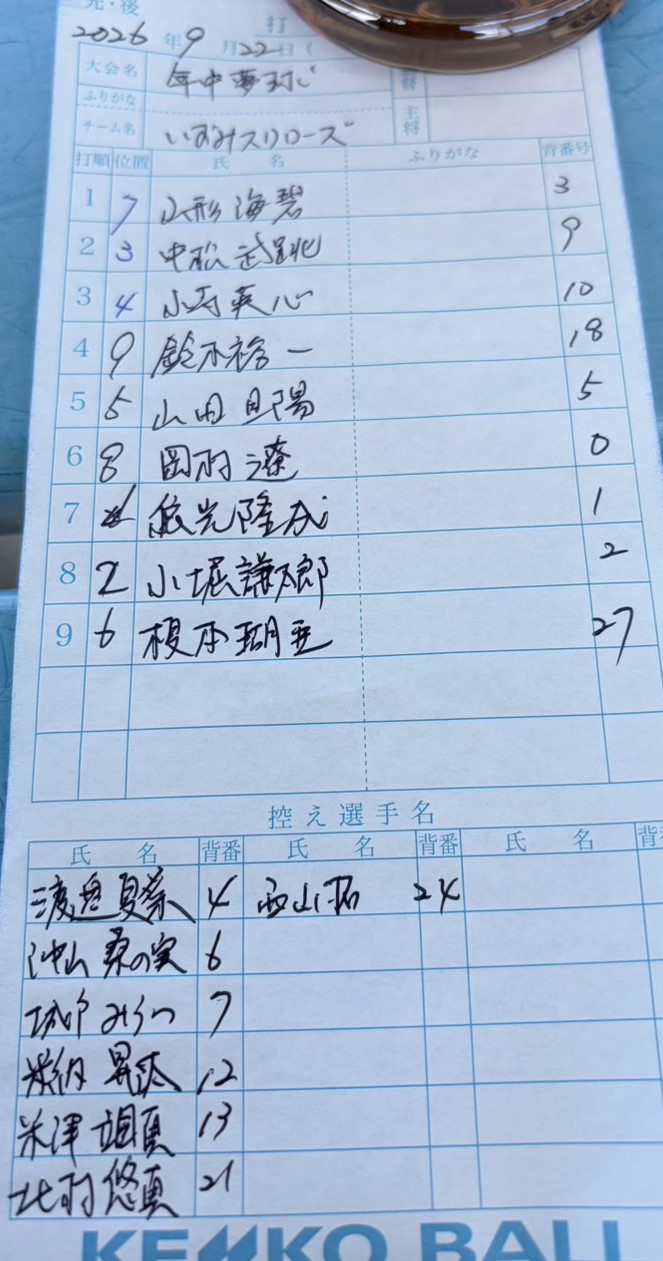 先・後 打
2026年9月22日(
大会名 年中夢球
ふりがな
チーム名 いずみスリローズ
主将
打順 位置 氏名 ふりがな 背番号
1 7 山形 海碧 3
2 3 中松 9
3 4 小寺 英心 10
4 9 鈴木裕一 18
5 5 山田 旦陽 5
6 8 岡村 遼 0
7 光隆成 1
8 2 小堀謙太郎 2
9 6 榎本瑚亜 27
控え選手名
氏名 背番 氏名 背番 氏名 背
渡邉 夏菜 4 西山 拓 24
沖山 桑の実 6
城戸 みうつ 7
昇汰 12
米澤 颯真 13
北村 悠真 21
KENKO BALL